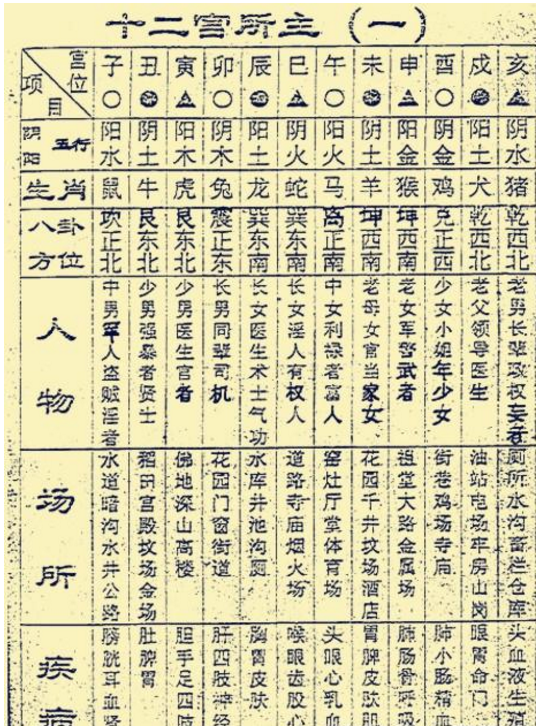 十二宫所主（一）
宫位 项目 子 丑 寅 卯 辰 巳 午 未 申 酉 戌 亥
阴阳五行 阳水 阴土 阳木 阴木 阳土 阴火 阳火 阴土 阳金 阴金 阳土 阴水
生肖 鼠 牛 虎 兔 龙 蛇 马 羊 猴 鸡 犬 猪
八卦方位 坎正北 艮东北 艮东北 震正东 巽东南 巽东南 离正南 坤西南 坤西南 兑正西 乾西北 乾西北
人物 中男罕人盗贼淫者 少男强暴者贤士 少男医生官者 长男同辈司机 长女医生术士气功 长女淫人有权人 中女利禄者富人 老母女官当家女 老女军警武者 少女小姐年少女 老父领导医生 老男长辈政权妄者
场所 水道暗沟水井公路 稻田宫殿坟场金场 佛地深山高楼 花园门窗街道 水库井池沟厕 道路寺庙烟火场 窑灶厅堂体育场 花园千井坟场酒店 祖堂大路金属场 街巷鸡场寺庙 油站电场牢房山岗 厕所水沟畜栏仓库
疾病 膀胱耳血肾 肚脾胃 胆手足四肢 肝四肢神经 胸胃皮肤 喉眼齿股心 头眼心乳血 胃脾皮肤 肺肠骨呼吸 肺小肠精血 眼胃命门 头血液生